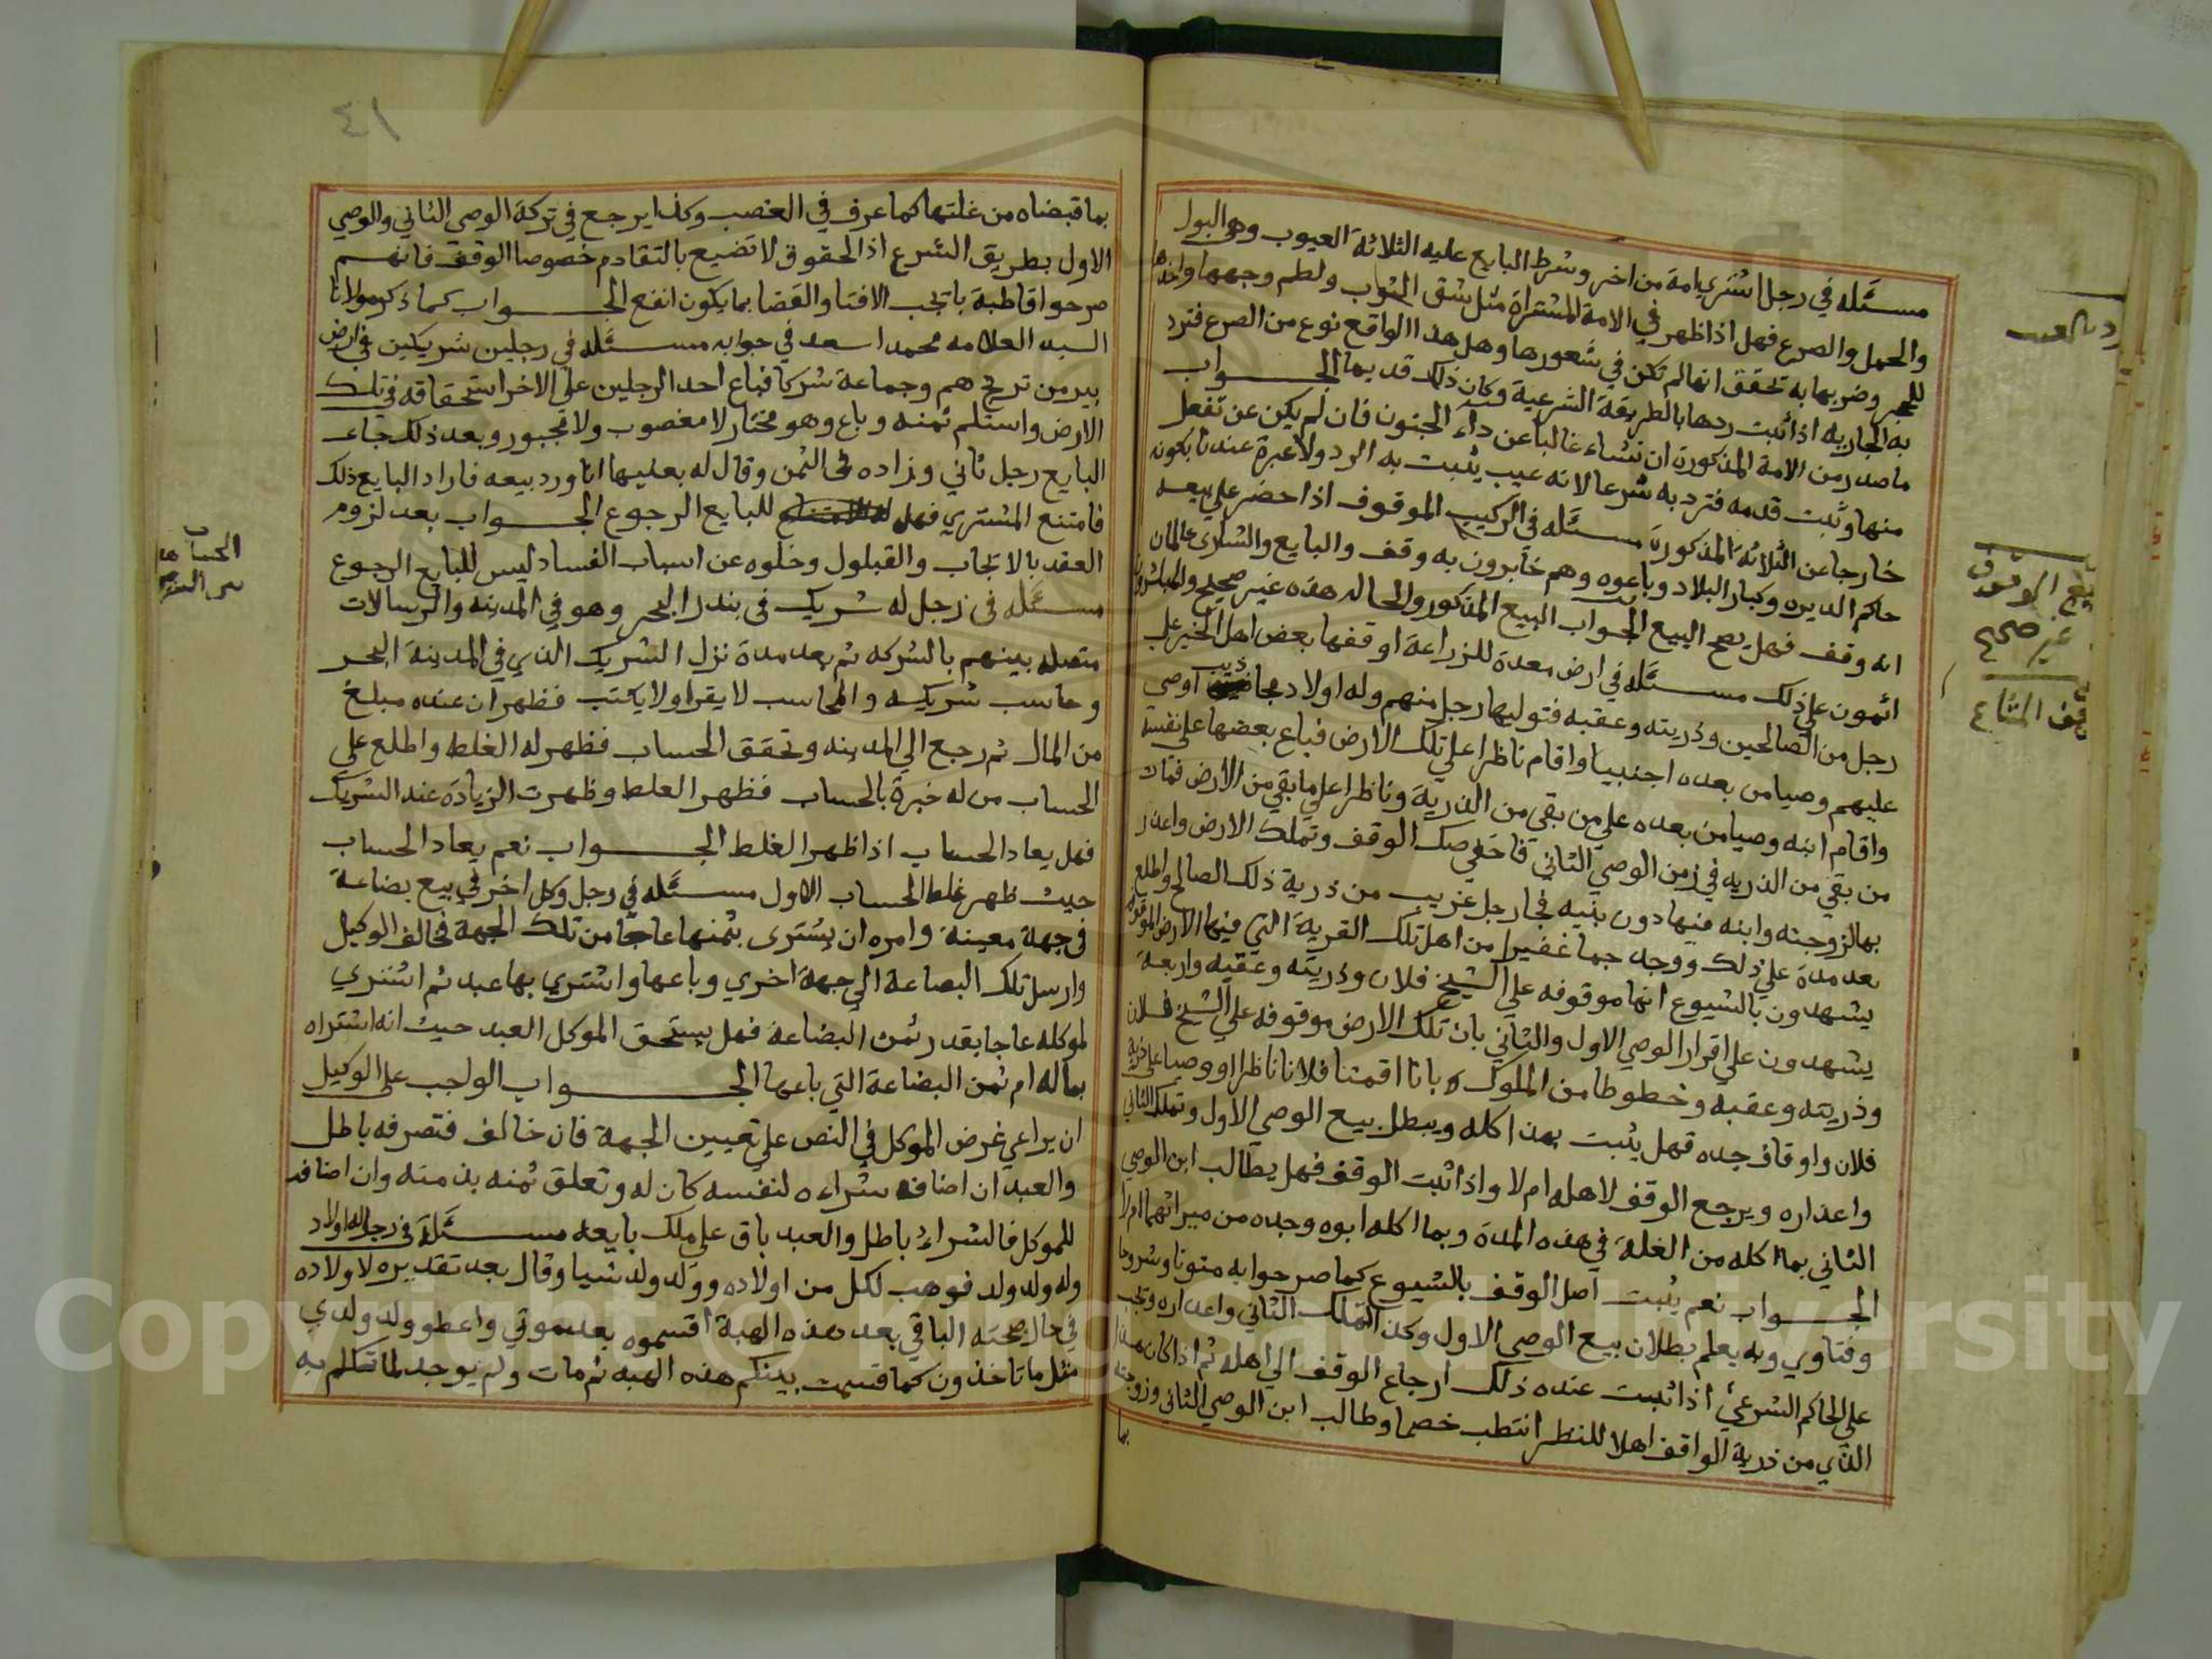 مسئله في رجل اشتري امة من اخر وشرط البايع عليه الثلاثة العيوب وهي البول
والحمل والصرع فهل اذا ظهر في الامة المشتراة مثل شق الثياب ولطم وجهها واخذها
للحجر وضربها به تحقق انها لم تكن في شعورها وهل هذا الواقع نوع من الصرع فترد
به الجاريه اذا ثبت ردها بالطريقة الشرعية وكان ذلك قديما الجواب
ما صدر من الامة المذكورة ان تنشاء غالبا عن داء الجنون فان لم يكن عن تفعل
منها وثبت قدمه فترد به شرعا لانه عيب يثبت به الرد ولا عبرة عندنا بكونه
خارجا عن الثلاثة المذكورة مسئله في الركيب الموقوف اذا حضر علي بيعه
حاكم الديره وكبار البلاد وباعوه وهم خابرون به وقف والبايع والشاري عالمان
انه وقف فهل يصح البيع الجواب البيع المذكور والحاله هذه غير صحيح والمباشرون
اثمون علي ذلك مسئله في ارض معدة للزراعة اوقفها بعض اهل الخير علي
رجل من الصالحين وذريته وعقبه فتوليها رجل منهم وله اولاد مجاذيب اوصي
عليهم وصيا من بعده اجنبيا واقام ناظرا علي تلك الارض فباع بعضها علي نفسه
واقام ابنه وصيا من بعده علي من بقي من الذرية وناظرا علي ما بقي من الارض فمات
من بقي من الذريه في زمن الوصي الثاني فاخفي صك الوقف وتملك الارض واعذر
بها لزوجته وابنه فيها دون بنيه فجا رجل غريب من ذرية ذلك الصالح واطلع
بعد مدة علي ذلك ووجد جما غفيرا من اهل تلك القرية التي فيها الارض الموقوفه
يشهدون بالشيوع انها موقوفه علي الشيخ فلان وذريته وعقبه واربعة
يشهدون علي اقرار الوصي الاول والثاني بان تلك الارض موقوفه علي الشيخ فلان
وذريته وعقبه وخطوطا من الملوك بانا اقمنا فلانا ناظرا ووصيا علي ذرية
فلان واوقاف جده فهل يثبت بهذا كله ويبطل بيع الوصي الاول وتملك الثاني
واعذاره ويرجع الوقف لاهله ام لا واذا ثبت الوقف فهل يطالب ابن الوصي
الثاني بما اكله من الغلة في هذه المدة وبما اكله ابوه وجده من ميراثهما ام لا
الجواب نعم يثبت اصل الوقف بالشيوع كما صرحوا به متونا وشروحا
وفتاوي وبه يعلم بطلان بيع الوصي الاول وكذا تملك الثاني واعذاره ويجب
علي الحاكم الشرعي اذا ثبت عنده ذلك ارجاع الوقف الي اهله ثم اذا كان هذا
الذي من ذرية الواقف اهلا للنظر انتصب خصما وطالب ابن الوصي الثاني وزوجته
بما
رد بالعيب
بيع الوقف
غير صحيح
وقف المشاع
٤١
بما قبضاه من غلتها كما عرف في الغصب وكذا يرجع في تركة الوصي الثاني والوصي
الاول بطريق الشرع اذ الحقوق لا تضيع بالتقادم خصوصا الوقف فانهم
صرحوا قاطبة با يجب الافتا والقضا بما يكون انفع الجواب كما ذكر مولانا
السيد العلامه محمد اسعد في جوابه مسئله في رجلين شريكين في ارض
بير من تركهم وجماعة شركا فباع احد الرجلين علي الاخر استحقاقه في تلك
الارض واستلم ثمنه وباع وهو مختار لا مغصوب ولا مجبور وبعد ذلك جاء
البايع رجل ثاني وزاده في الثمن وقال له بعليها انا ورد بيعه فاراد البايع ذلك
فامتنع المشتري فهل للبايع الرجوع الجواب بعد لزوم
العقد بالايجاب والقبلول وخلوه عن اسباب الفساد ليس للبايع الرجوع
مسئله في رجل له شريك في بندر البحر وهو في المدينه والرسالات
متصله بينهم بالشركه ثم بعد مدة نزل الشريك الذي في المدينة البحر
وحاسب شريكه والمحاسب لا يقرا ولا يكتب فظهر ان عنده مبلغ
من المال ثم رجع الي المدينه وتحقق الحساب فظهر له الغلط واطلع علي
الحساب من له خبرة بالحساب فظهر الغلط وظهرت الزيادة عند الشريك
فهل يعاد الحساب اذا ظهر الغلط الجواب نعم يعاد الحساب
حيث ظهر غلط الحساب الاول مسئله في رجل وكل اخر في بيع بضاعة
في جهة معينة وامره ان يشترى بثمنها عاجا من تلك الجهة فخالف الوكيل
وارسل تلك البضاعة الي جهة اخري وباعها واشتري بها عبد ثم اشتري
لموكله عاجا بقدر ثمن البضاعة فهل يستحق الموكل العبد حيث انه اشتراه
بماله ام ثمن البضاعة التي باعها الجواب الواجب على الوكيل
ان يراعي غرض الموكل في النص علي تعيين الجهة فان خالف فتصرفه باطل
والعبد ان اضافه شراءه لنفسه كان له وتعلق ثمنه بذمته وان اضافه
للموكل فالشراء باطل والعبد باق علي ملك بايعه مسئلة في رجل له اولاد
وله ولد ولد فوهب لكل من اولاده وولد ولد شيا وقال بعد تقديره لاولاده
في حال صحته الباقي بعد هذه الهبة اقسموه بعد موتي واعطوا ولد ولدي
مثل ما تاخذون كما قسمت بينكم هذه الهبه ثم مات ولم يوجد لما تكلم به
الحساب
Copyright © King Saud University